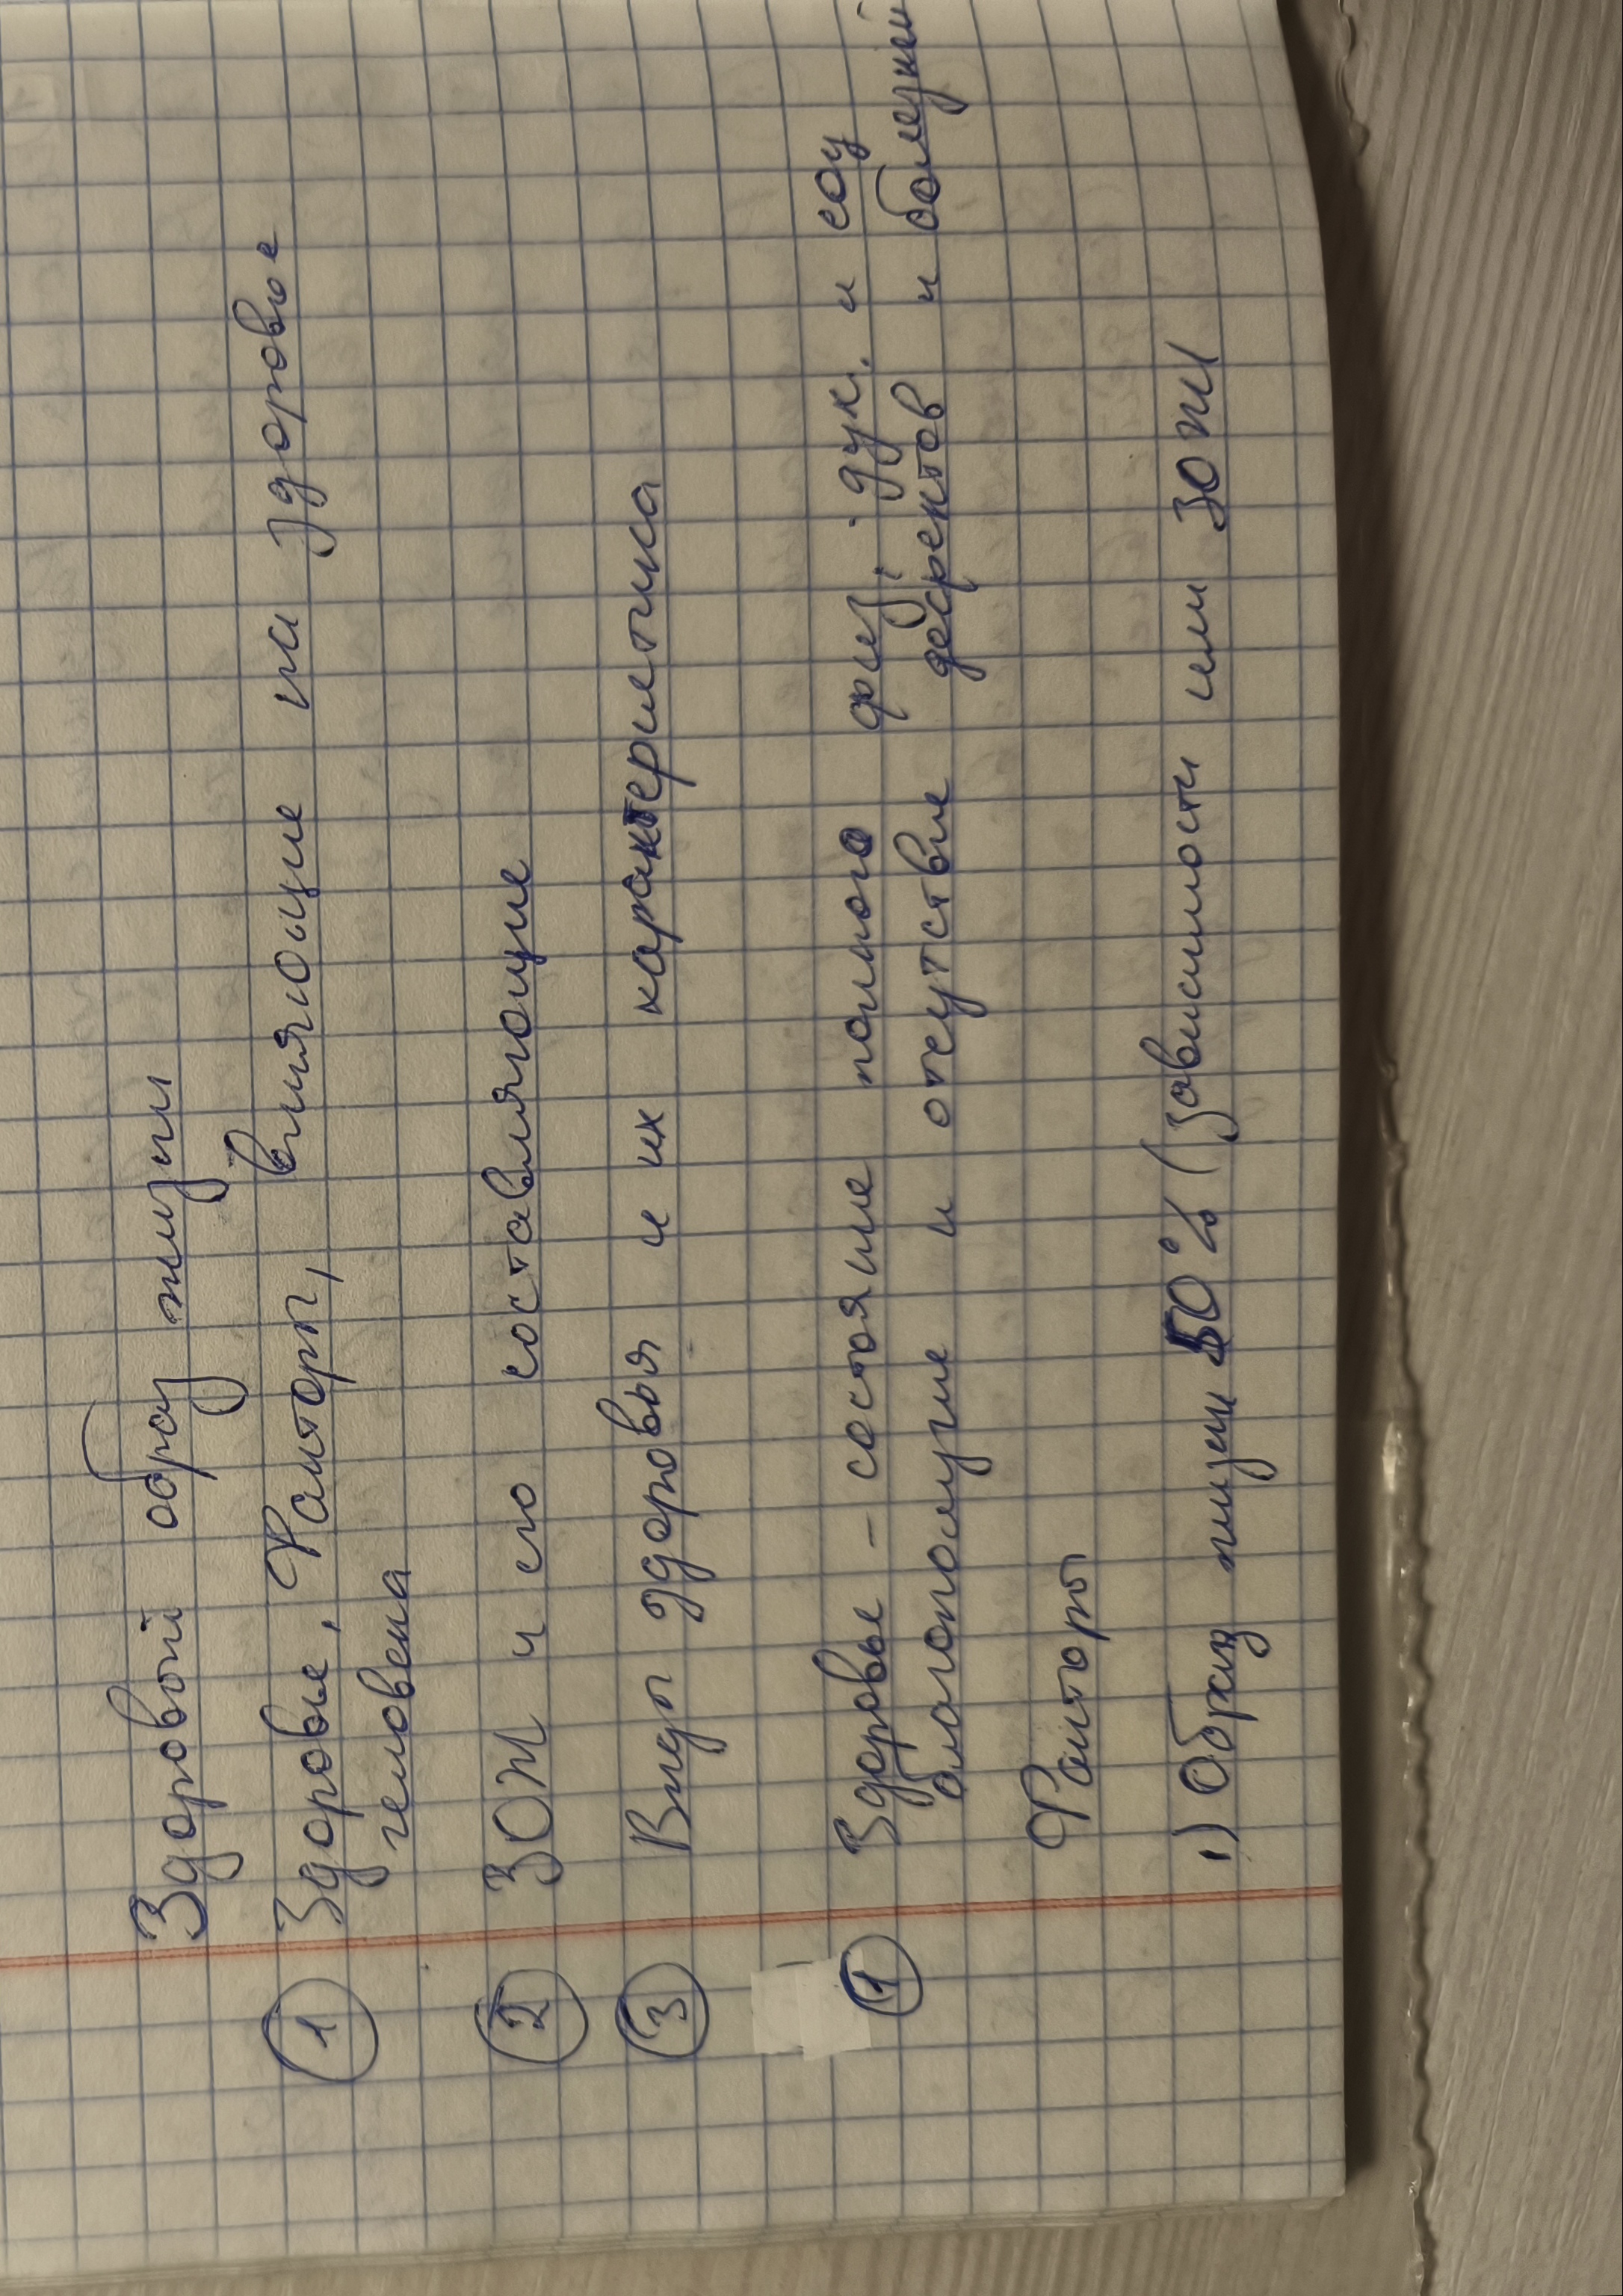 Здоровый образ жизни
① Здоровье, Факторы, влияющие на здоровье
человека
② ЗОЖ и его составляющие
③ Виды здоровья и их характеристика
① Здоровье - состояние полного физ; дух. и соц
благополучие и отсутствие дефектов и болезней
Факторы
1) Образ жизни 50% (зависимости или ЗОЖ)